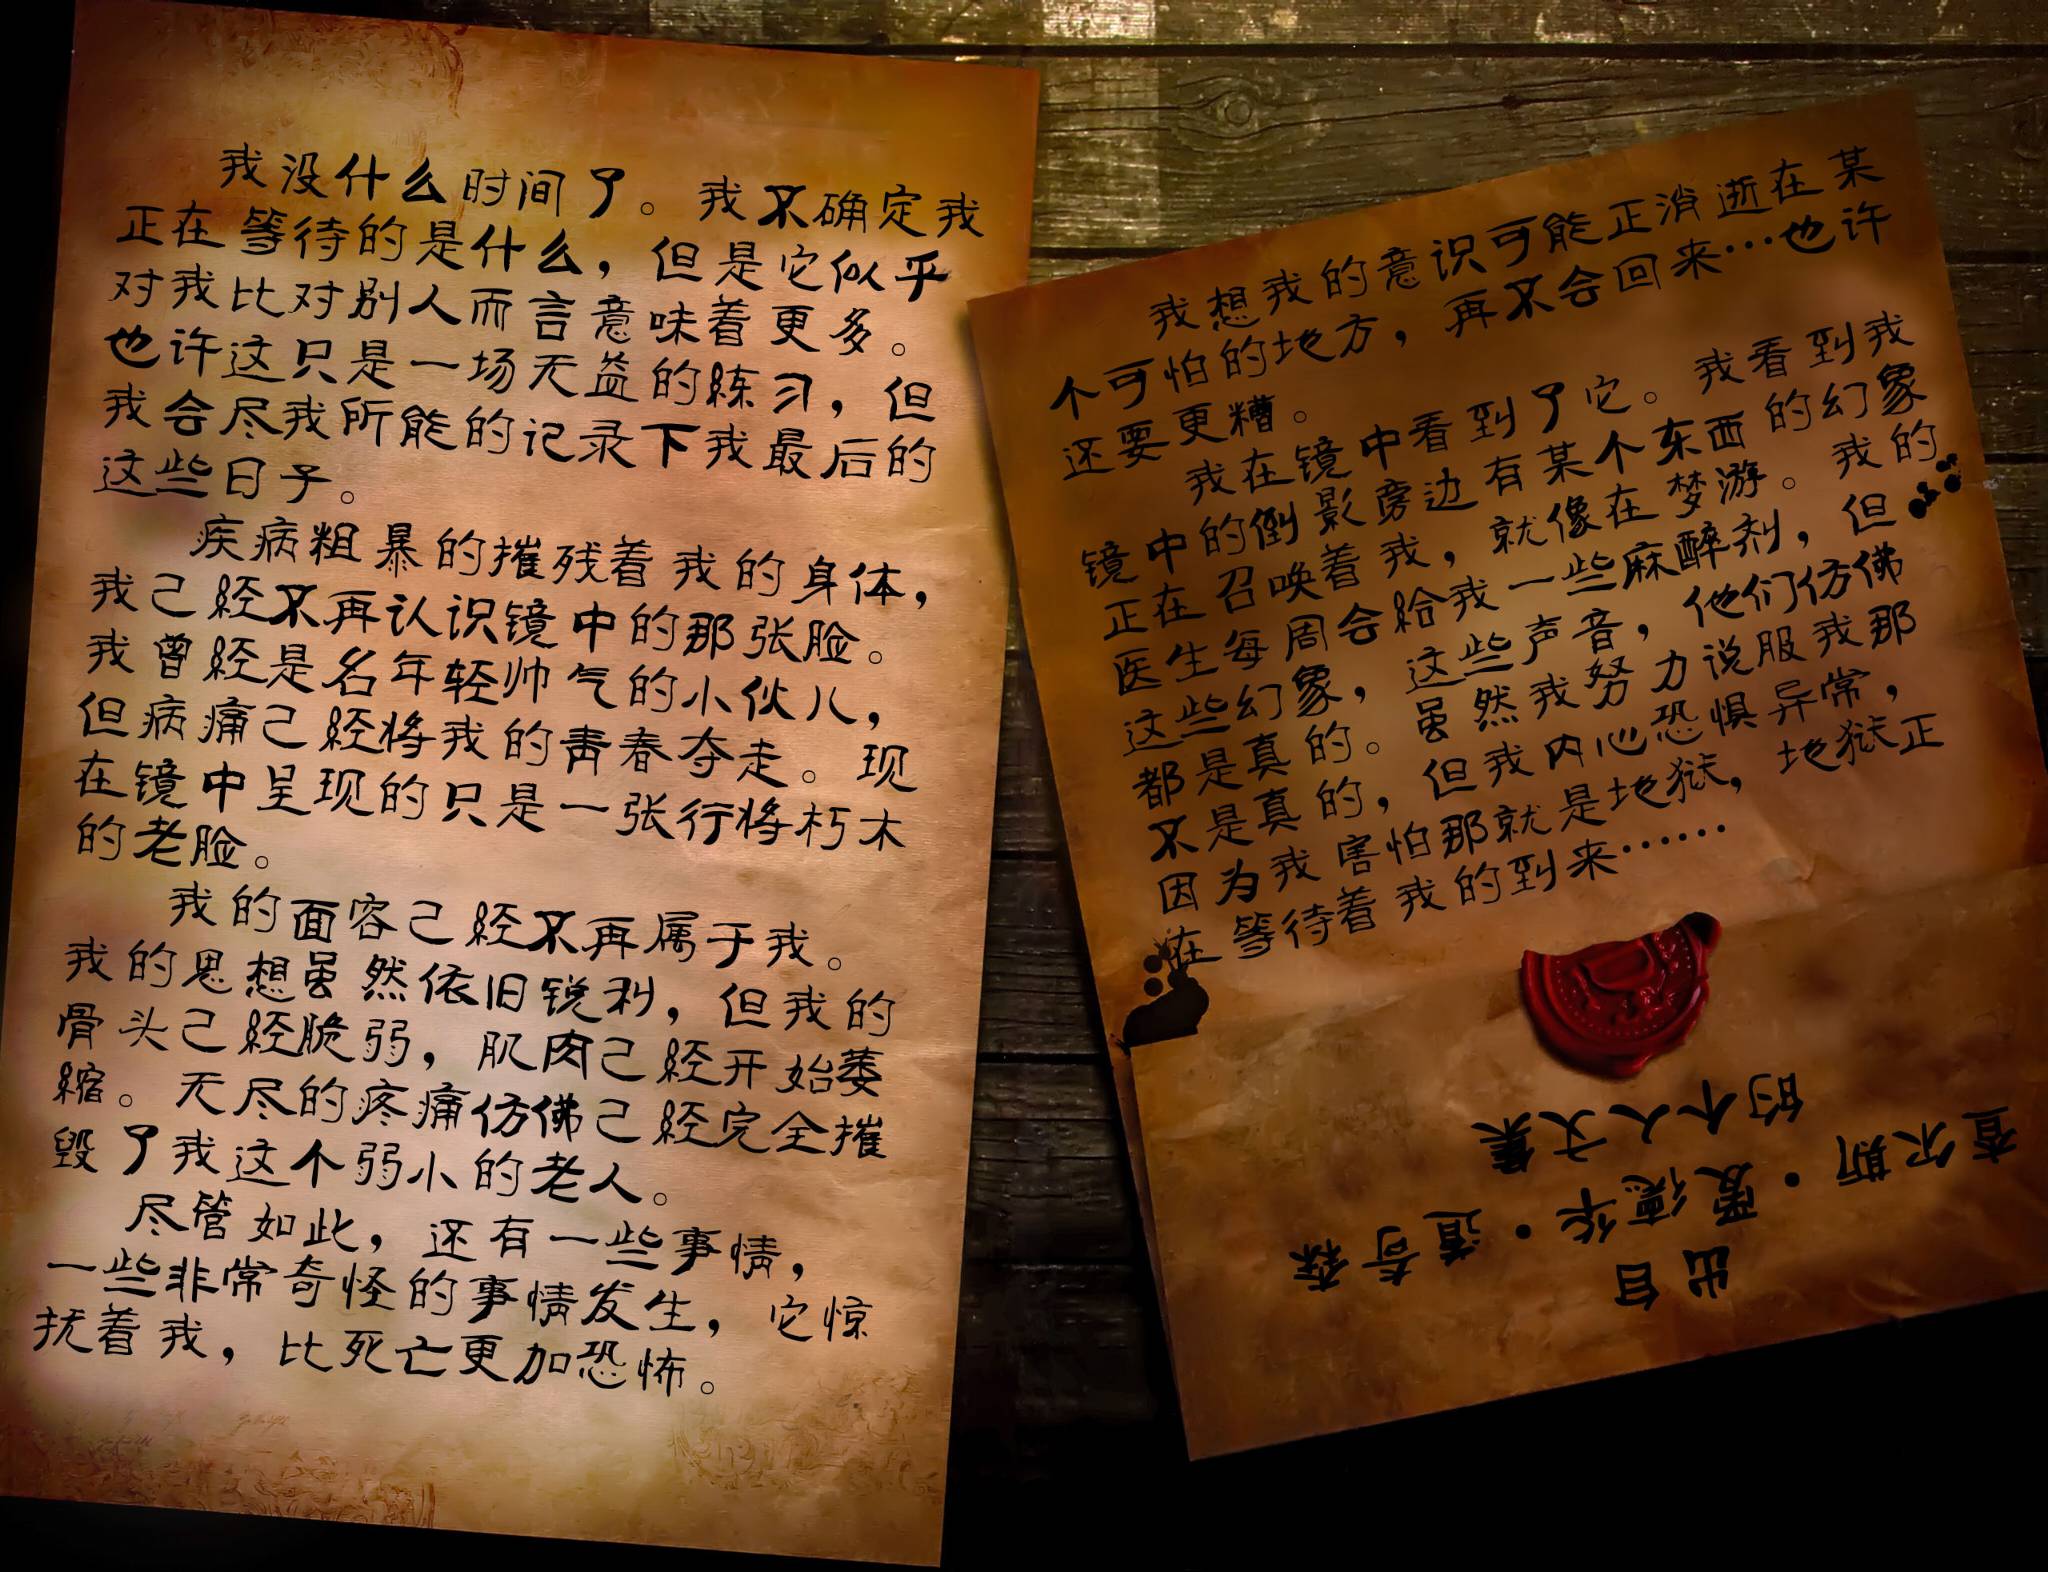 我没什么时间了。我不确定我
正在等待的是什么，但是它似乎
对我比对别人而言意味着更多。
也许这只是一场无益的练习，但
我会尽我所能的记录下我最后的
这些日子。
疾病粗暴的摧残着我的身体，
我己經不再认识镜中的那张脸。
我曾经是名年轻帅气的小伙儿，
但病痛己經将我的青春夺走。现
在镜中呈现的只是一张行将朽木
的老脸。
我的面容己經不再属于我。
我的思想虽然依旧锐利，但我的
骨头己經脆弱，肌肉己經开始萎
縮。无尽的疼痛仿佛己經完全摧
毁了我这个弱小的老人。
尽管如此，还有一些事情，
一些非常奇怪的事情发生，它惊
扰着我，比死亡更加恐怖。
我想我的意识可能正消逝在某
个可怕的地方，再不会回来…也许
还要更糟。
我在镜中看到了它。我看到我
镜中的倒影旁边有某个东西的幻象
正在召唤着我，就像在梦游。我的
医生每周会给我一些麻醉剂，但
这些幻象，这些声音，他们仿佛
都是真的。虽然我努力说服我那
不是真的，但我内心恐惧异常，
因为我害怕那就是地狱，地狱正
在等待着我的到来……
出自
查尔斯·爱德华·道奇森
的个人文集